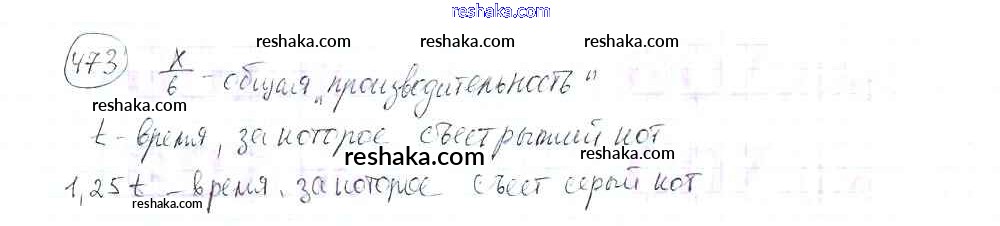 reshaka.com
reshaka.com reshaka.com
473 x/6 - общая „производительность"
reshaka.com
t - время, за которое съест рыжий кот
reshaka.com
1,25t - время, за которое съест серый кот
reshaka.com reshaka.com